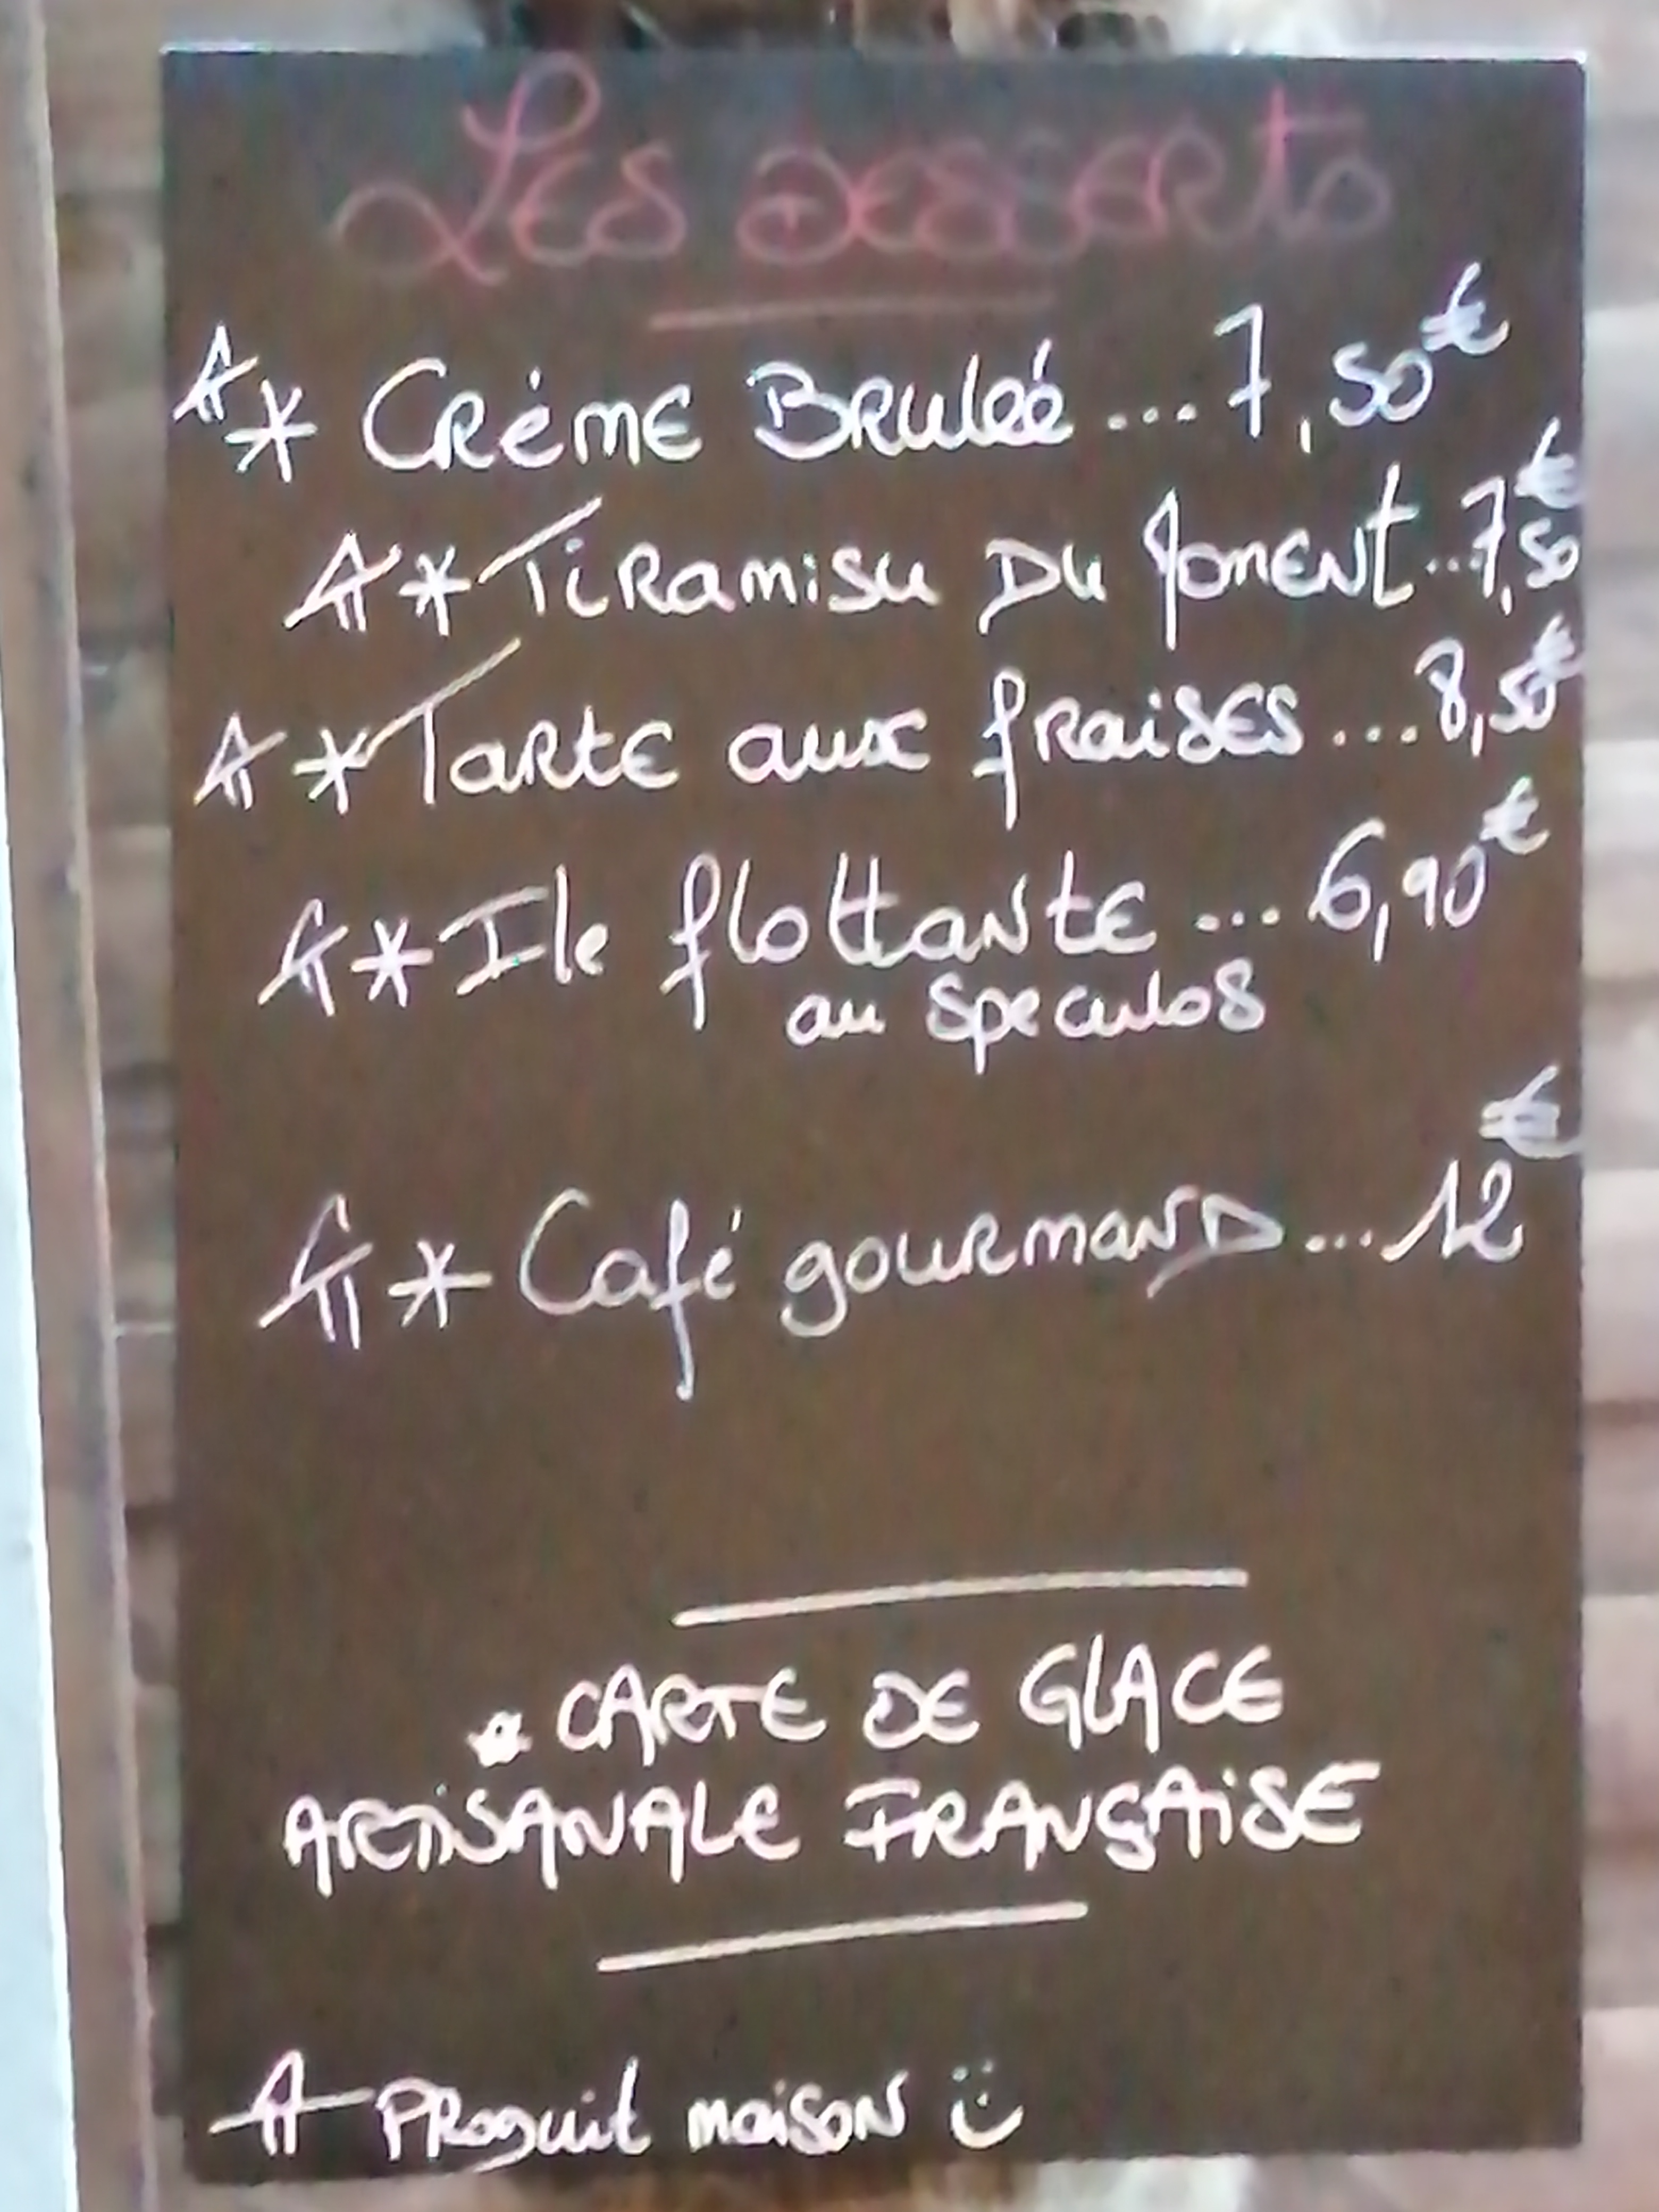 Les Desserts
* Créme Bruleé ... 7,50€
* Tiramisu Du Moment .. 7,50€
* Tarte aux fraises ... 8,50€
* Ile flottante ... 6,90€
au Speculos
* Café gourmand ... 12€
* CARTE DE GLACE
ARTiSANALE FRANÇAiSE
Produit maison :)